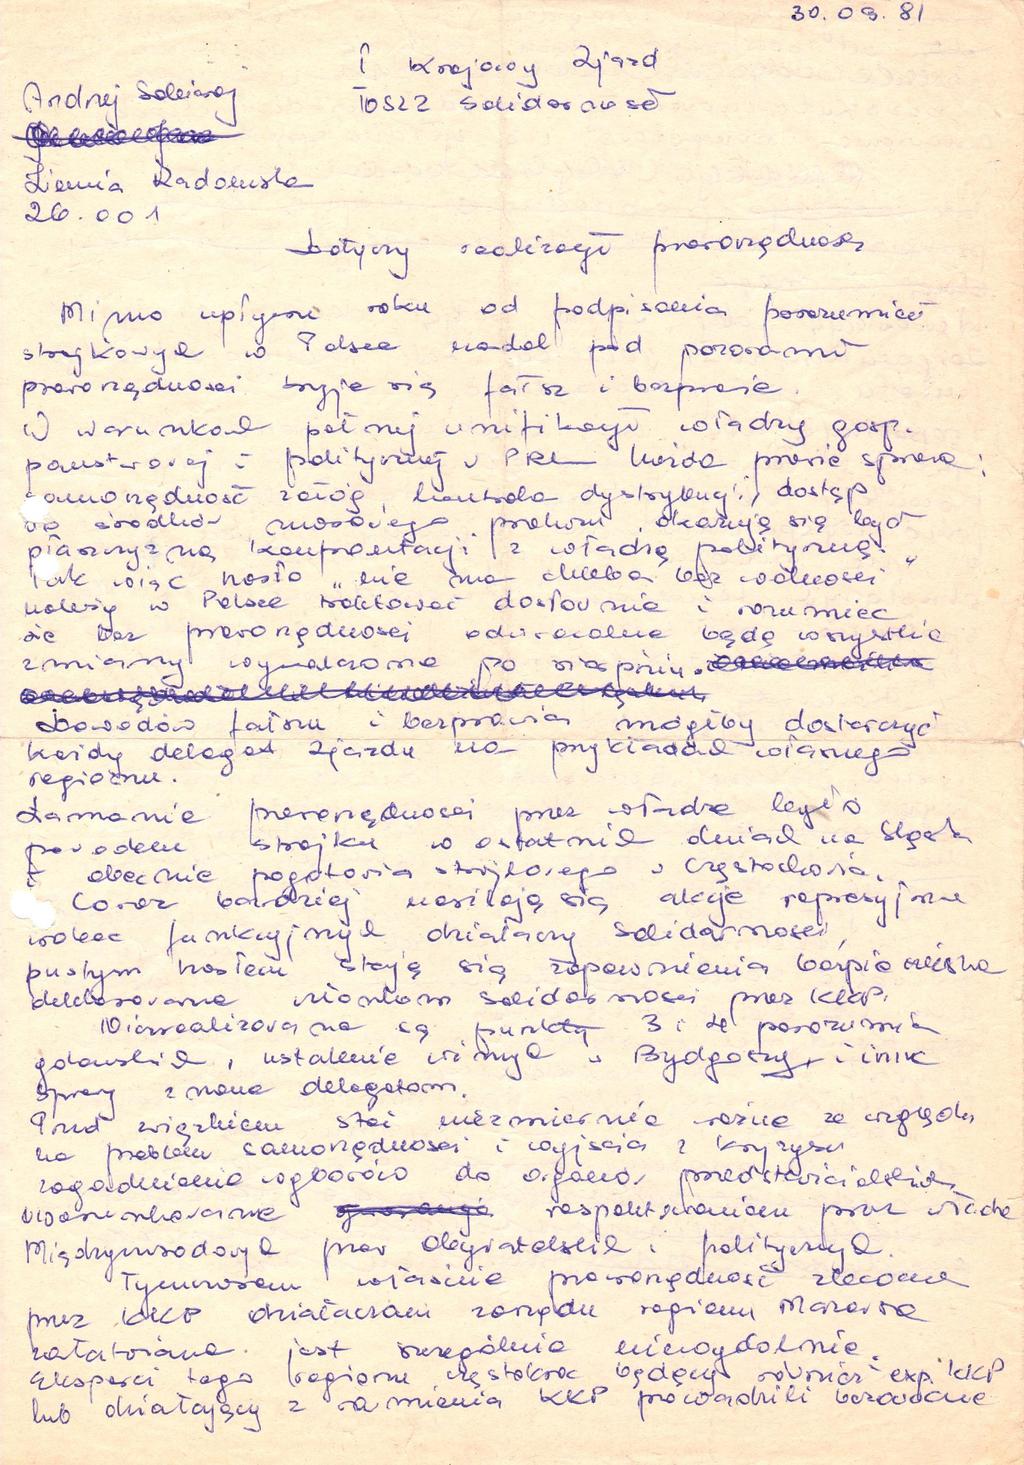 30.09.81
I Krajowy Zjazd
Andrzej Sobieraj
NSZZ Solidarność
Ziemia Radomska
26.001
Dotyczy realizacji praworządności
Mimo upływu roku od podpisania porozumień
strajkowych w Polsce nadal pod pozorami
praworządności kryje się fałsz i bezprawie.
W warunkach pełnej unifikacji władzy gosp.
państwowej i politycznej w PRL każda prawie sprawa:
samorządność załóg, kontrola dystrybucji, dostęp
do środków masowego przekazu, okazują się być
płaszczyzną konfrontacji z władzą polityczną.
Tak więc hasło „nie ma chleba bez wolności"
należy w Polsce traktować dosłownie i rozumieć
że bez praworządności odwracalne będą wszystkie
zmiany wywalczone po sierpniu.
Dowodów fałszu i bezprawia mógłby dostarczyć
każdy delegat zjazdu na przykładach własnego
regionu.
Łamanie praworządności przez władze było
powodem strajku w ostatnich dniach na Śląsku
i obecnie pogotowia strajkowego w Częstochowie.
Coraz bardziej nasilają się akcje represyjne
wobec funkcyjnych działaczy Solidarności,
pustym hasłem stają się zapewnienia bezpieczeństwa
deklarowane członkom Solidarności przez KKP.
Niezrealizowane są punkty 3 i 4 porozumień
gdańskich, ustalenie winnych w Bydgoszczy, i inne
sprawy znane delegatom.
Przed związkiem stoi niezmiernie ważne ze względu
na problem samorządności i wyjścia z kryzysu
zagadnienie wyborów do organów przedstawicielskich
uwarunkowane respektowaniem przez władze
Międzynarodowych praw Obywatelskich i politycznych.
Tymczasem właśnie praworządność zlecona
przez KKP działaczom zarządu regionu Mazowsze
załatwiana jest szczególnie nieudolnie.
Eksperci tego regionu częstokroć będący również exp. KKP
lub działający z ramienia KKP prowadzili